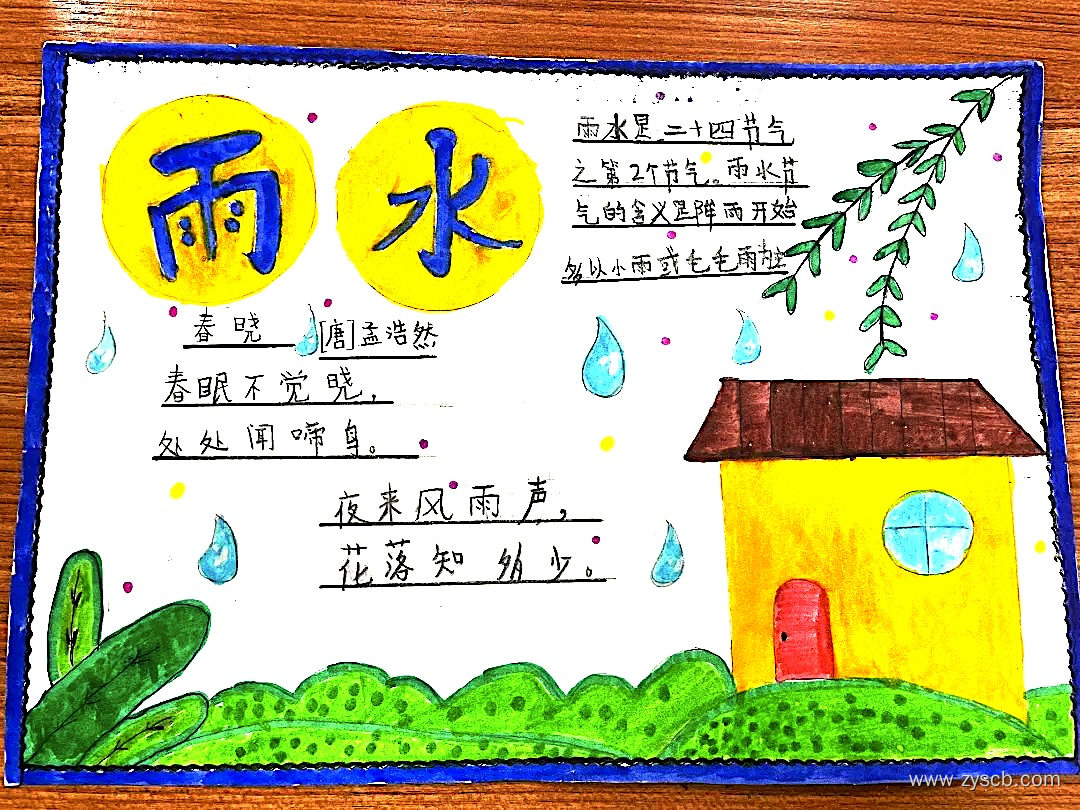 雨水
雨水是二十四节气
之第2个节气。雨水节
气的含义是降雨开始
多以小雨或毛毛雨为主
春晓 [唐]孟浩然
春眠不觉晓,
处处闻啼鸟。
夜来风雨声,
花落知多少。
www.zyscb.com